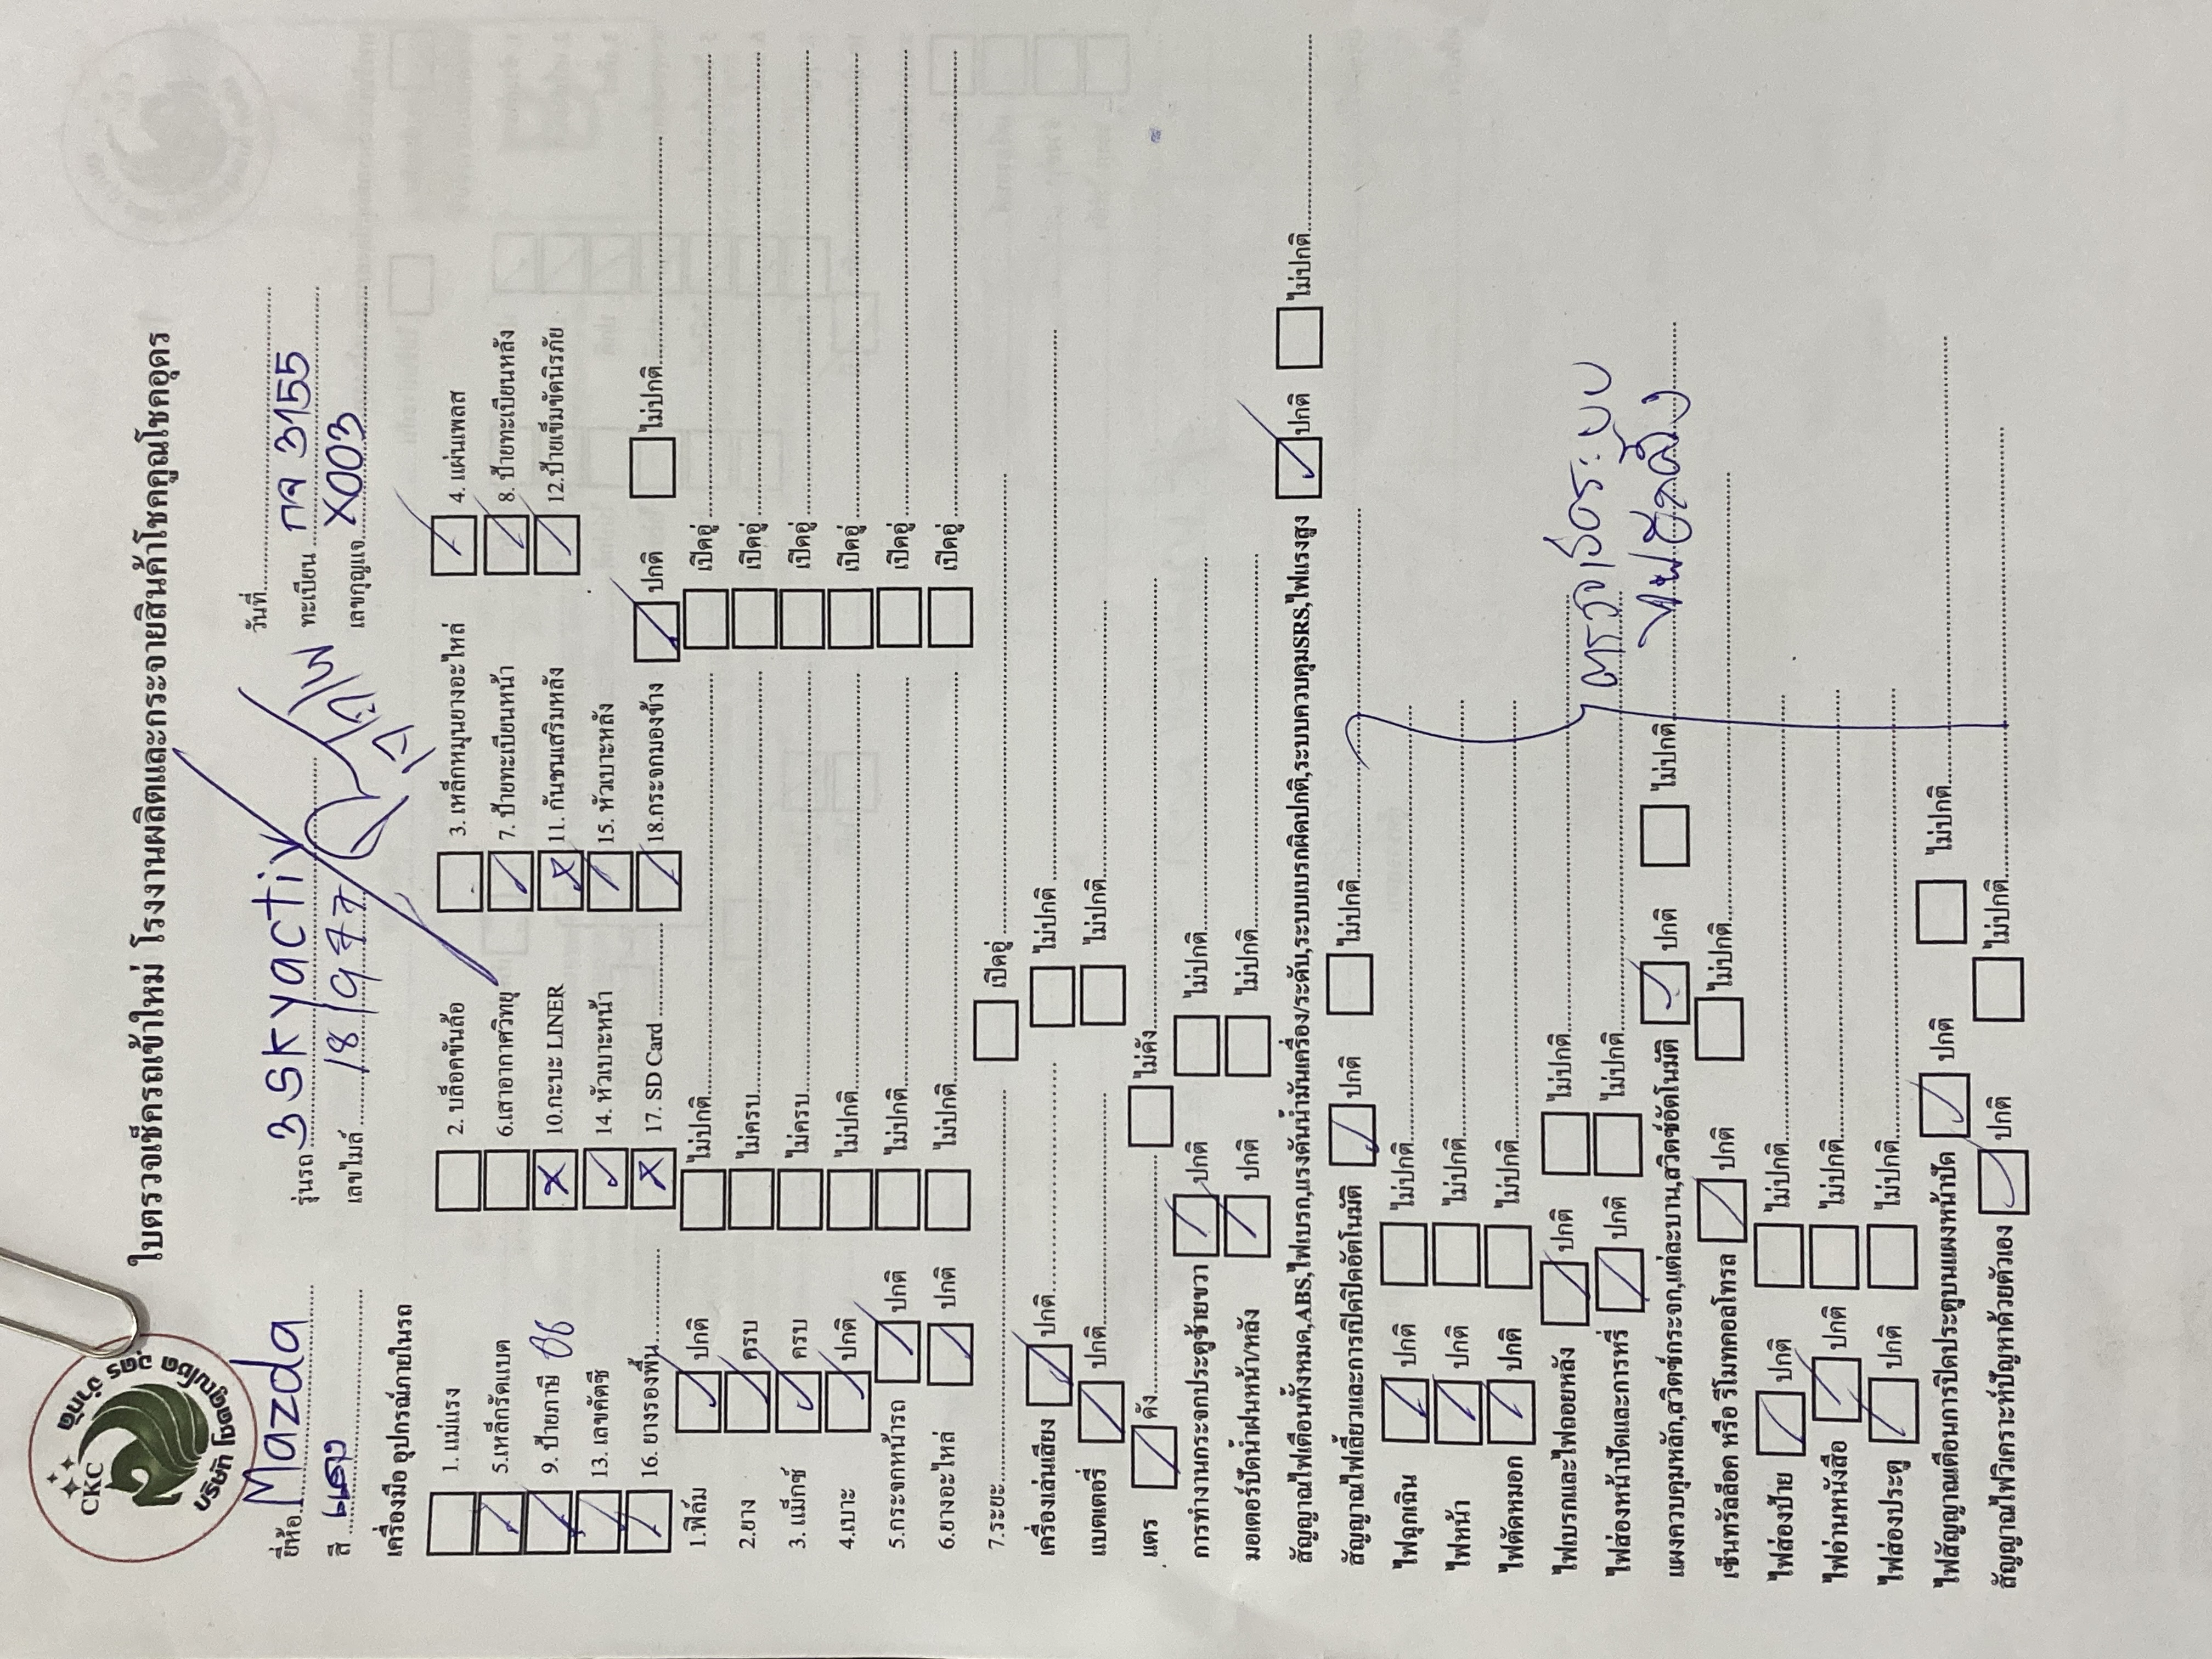 ใบตรวจเช็ครถเข้าใหม่ โรงงานผลิตและกระจายสินค้าโชคคูณโชคอุดร
CKC
บริษัท โชคคูณโชค อุดร จำกัด
วันที่
ยี่ห้อ Mazda รุ่นรถ 3 Skyactiv ทะเบียน กจ 3155
สี แดง เลขไมล์ เลขกุญแจ X003
เครื่องมือ อุปกรณ์ภายในรถ
1. แม่แรง 2. บล็อคขันล้อ 3. เหล็กหมุนยางอะไหล่ 4. แผ่นเพลส
5.เหล็กรัดแบต 6.เสาอากาศวิทยุ 7. ป้ายทะเบียนหน้า 8. ป้ายทะเบียนหลัง
9. ป้ายภาษี 66 10.กระบะ LINER 11. กันชนเสริมหลัง 12.ป้ายเข็มขัดนิรภัย
13. เลขคัตซี 14. หัวเบาะหน้า 15. หัวเบาะหลัง
16. ยางรองพื้น 17. SD Card 18.กระจกมองข้าง ปกติ ไม่ปกติ
1.ฟิล์ม ปกติ ไม่ปกติ เปิดอู่
2.ยาง ครบ ไม่ครบ เปิดอู่
3. แม็กซ์ ครบ ไม่ครบ เปิดอู่
4.เบาะ ปกติ ไม่ปกติ เปิดอู่
5.กระจกหน้ารถ ปกติ ไม่ปกติ เปิดอู่
6.ยางอะไหล่ ปกติ ไม่ปกติ เปิดอู่
7.ระยะ เปิดอู่
เครื่องเล่นเสียง ปกติ ไม่ปกติ
แบตเตอรี่ ปกติ ไม่ปกติ
แตร ดัง ไม่ดัง
การทำงานกระจกประตูซ้ายขวา ปกติ ไม่ปกติ
มอเตอร์ปัดน้ำฝนหน้า/หลัง ปกติ ไม่ปกติ
สัญญาณไฟเตือนทั้งหมด,ABS,ไฟเบรก,แรงดันน้ำมันเครื่อง/ระดับ,ระบบเบรกผิดปกติ,ระบบควบคุมSRS,ไฟแรงสูง ปกติ ไม่ปกติ
สัญญาณไฟเลี้ยวและการเปิดปิดอัตโนมัติ ปกติ ไม่ปกติ
ไฟฉุกเฉิน ปกติ ไม่ปกติ
ไฟหน้า ปกติ ไม่ปกติ
ไฟตัดหมอก ปกติ ไม่ปกติ
ไฟเบรกและไฟถอยหลัง ปกติ ไม่ปกติ
ตรวจเช็คระบบ
ไฟส่องหน้าปัดและการหรี่ ปกติ ไม่ปกติ
แผงควบคุมหลัก,สวิตซ์กระจก,แต่ละบาน,สวิตซ์อัตโนมัติ ปกติ ไม่ปกติ
เซ็นทรัลล็อค หรือ รีโมทคอลโทรล ปกติ ไม่ปกติ
ไฟส่องป้าย ปกติ ไม่ปกติ
ไฟอ่านหนังสือ ปกติ ไม่ปกติ
ไฟส่องประตู ปกติ ไม่ปกติ
ไฟสัญญาณเตือนการปิดประตูบนแผงหน้าปัด ปกติ ไม่ปกติ
สัญญาณไฟวิเคราะห์ปัญหาด้วยตัวเอง ปกติ ไม่ปกติ